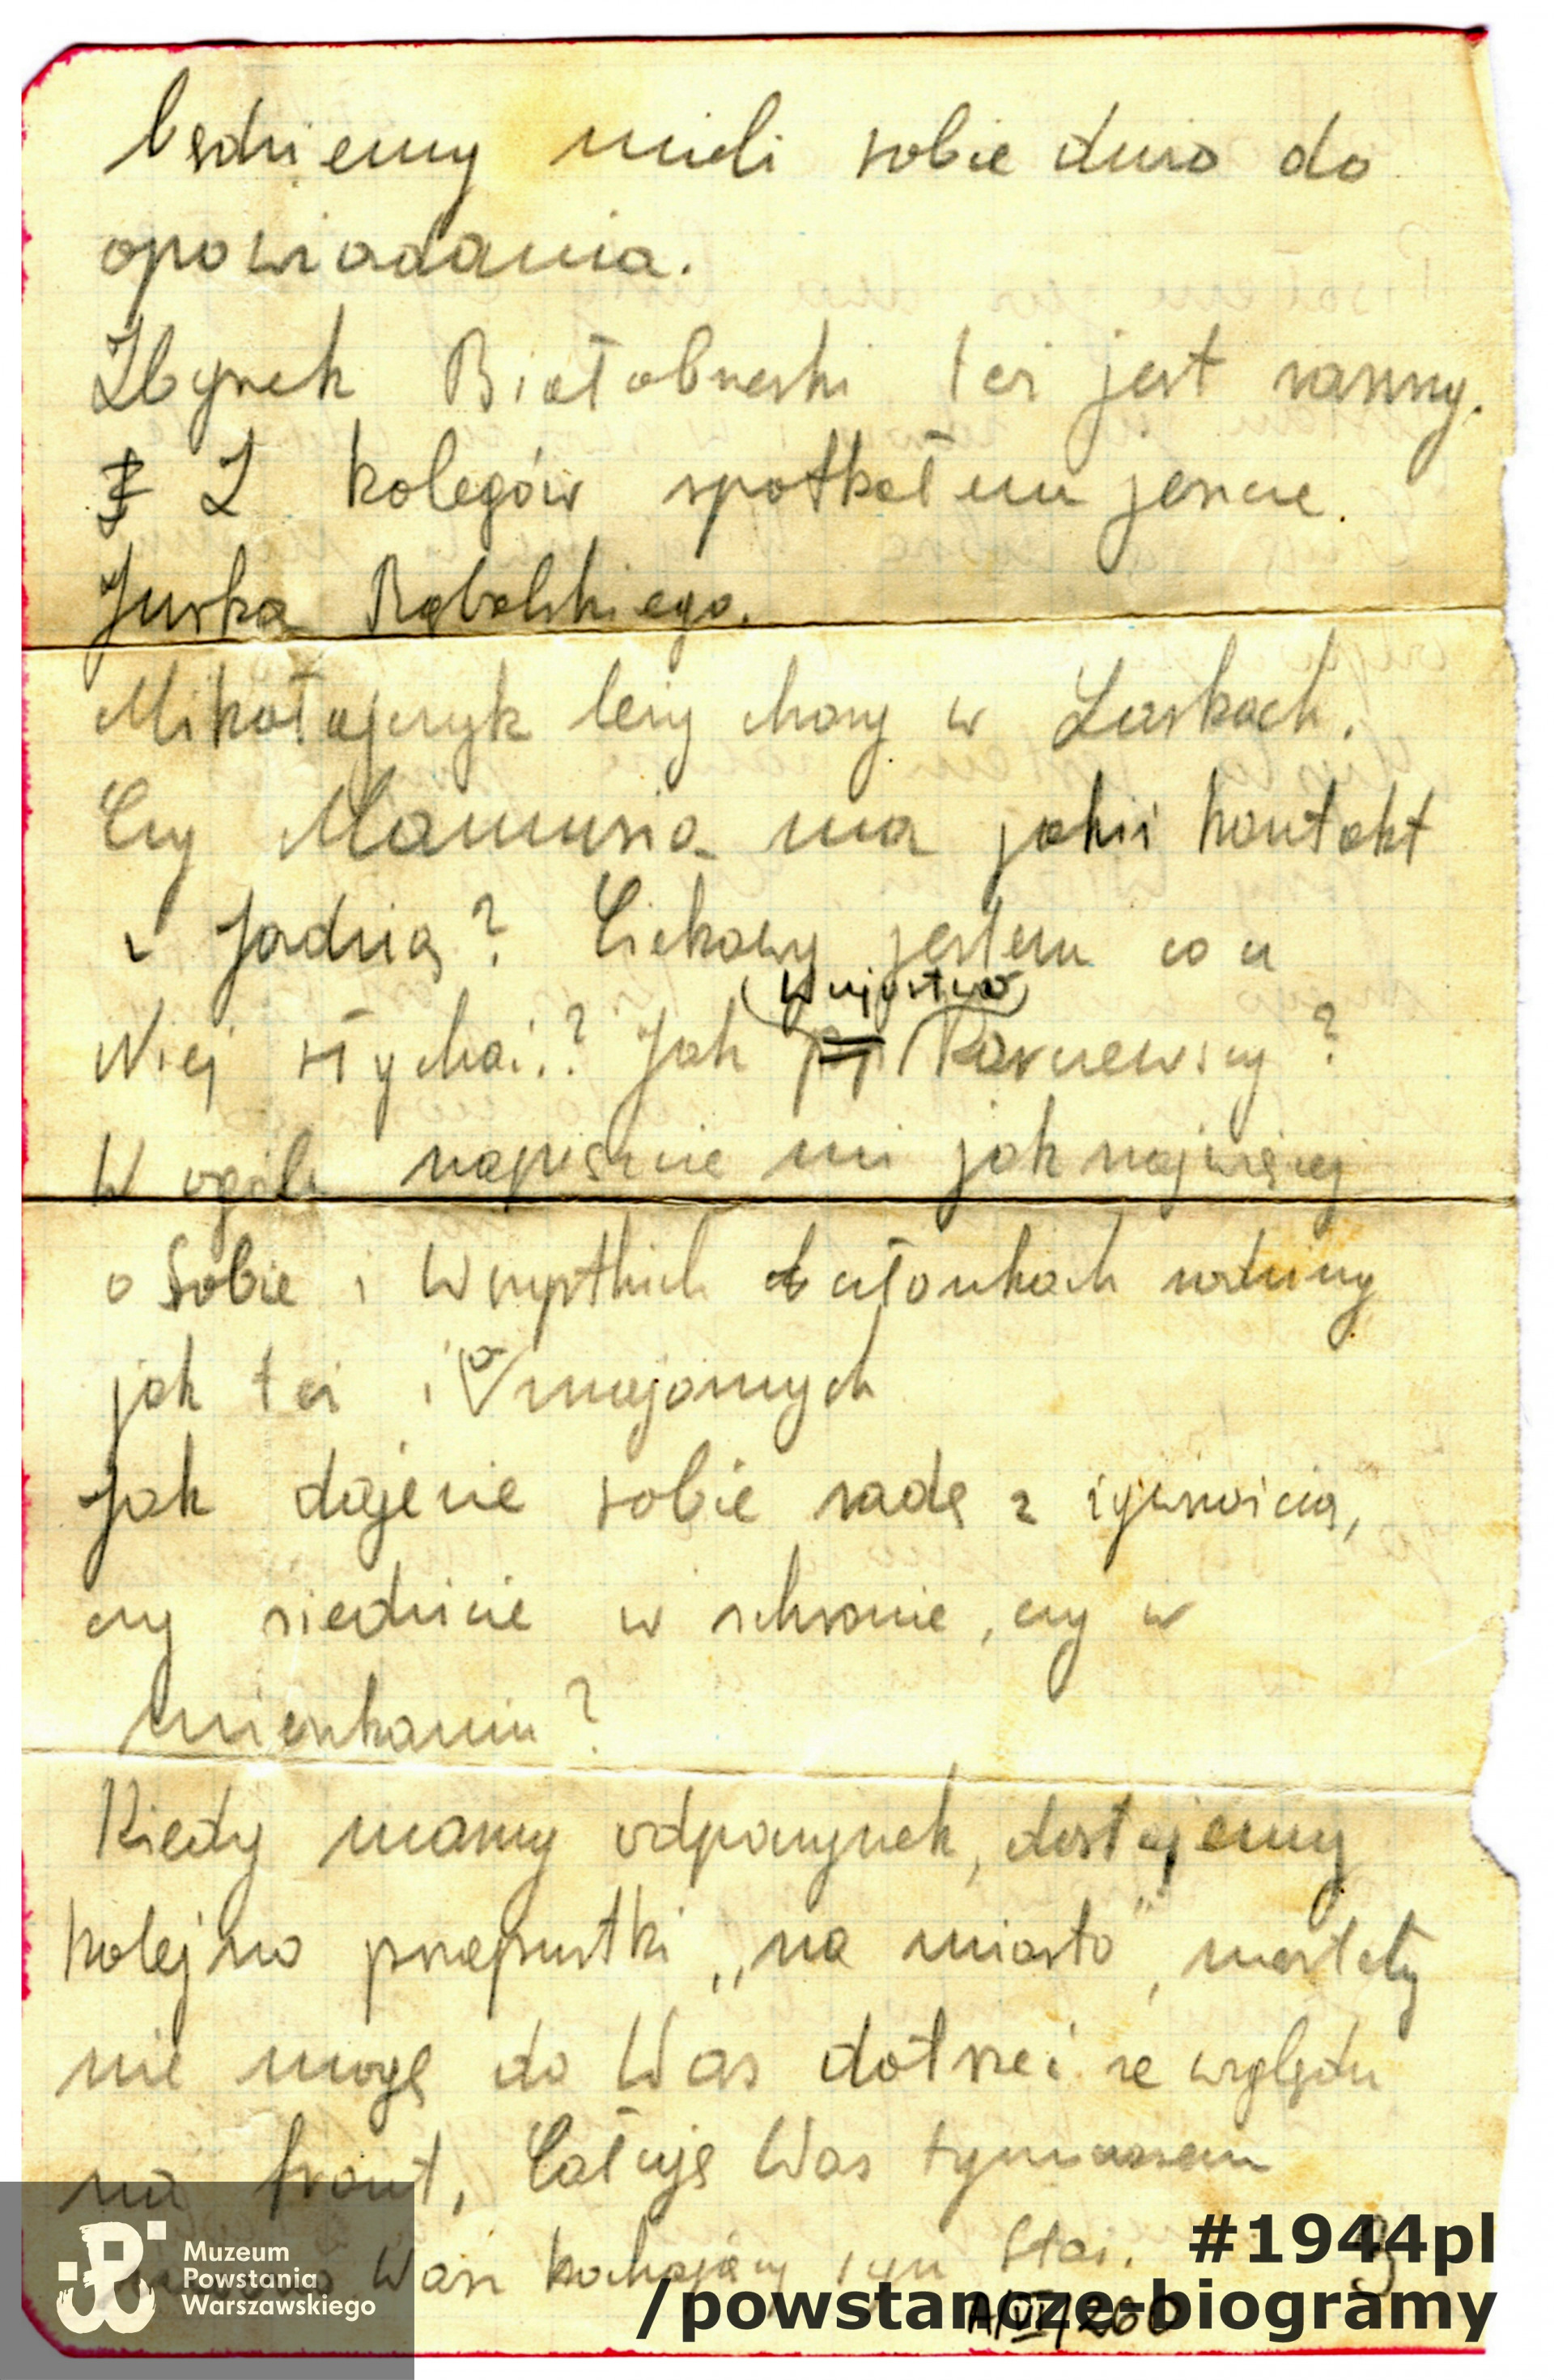 będziemy mieli sobie dużo do
opowiadania.
Zbyszek Białobrzeski też jest ranny.
Z kolegów spotkałem jeszcze
Jurka Rąbalskiego.
Mikołajczyk leży chory w Laskach.
Czy Mamusia ma jakiś kontakt
z Jadzią? Ciekawy jestem co u
Niej słychać? Jak (Wujostwo) pp
W ogóle napiszcie mi jak najwięcej
o Sobie i Wszystkich członkach rodziny
jak też i (o) znajomych
Jak dajecie sobie radę z żywnością,
czy siedzicie w schronie, czy w
mieszkaniu?
Kiedy mamy odpoczynek, dostajemy
kolejno przepustki „na miasto”, niestety
nie mogę do Was dotrzeć ze względu
na front, Całuję Was tymczasem
Wasz kochający syn Staś.
3
A/VI/260
Muzeum
Powstania
Warszawskiego
#1944pl
/powstancze-biogramy